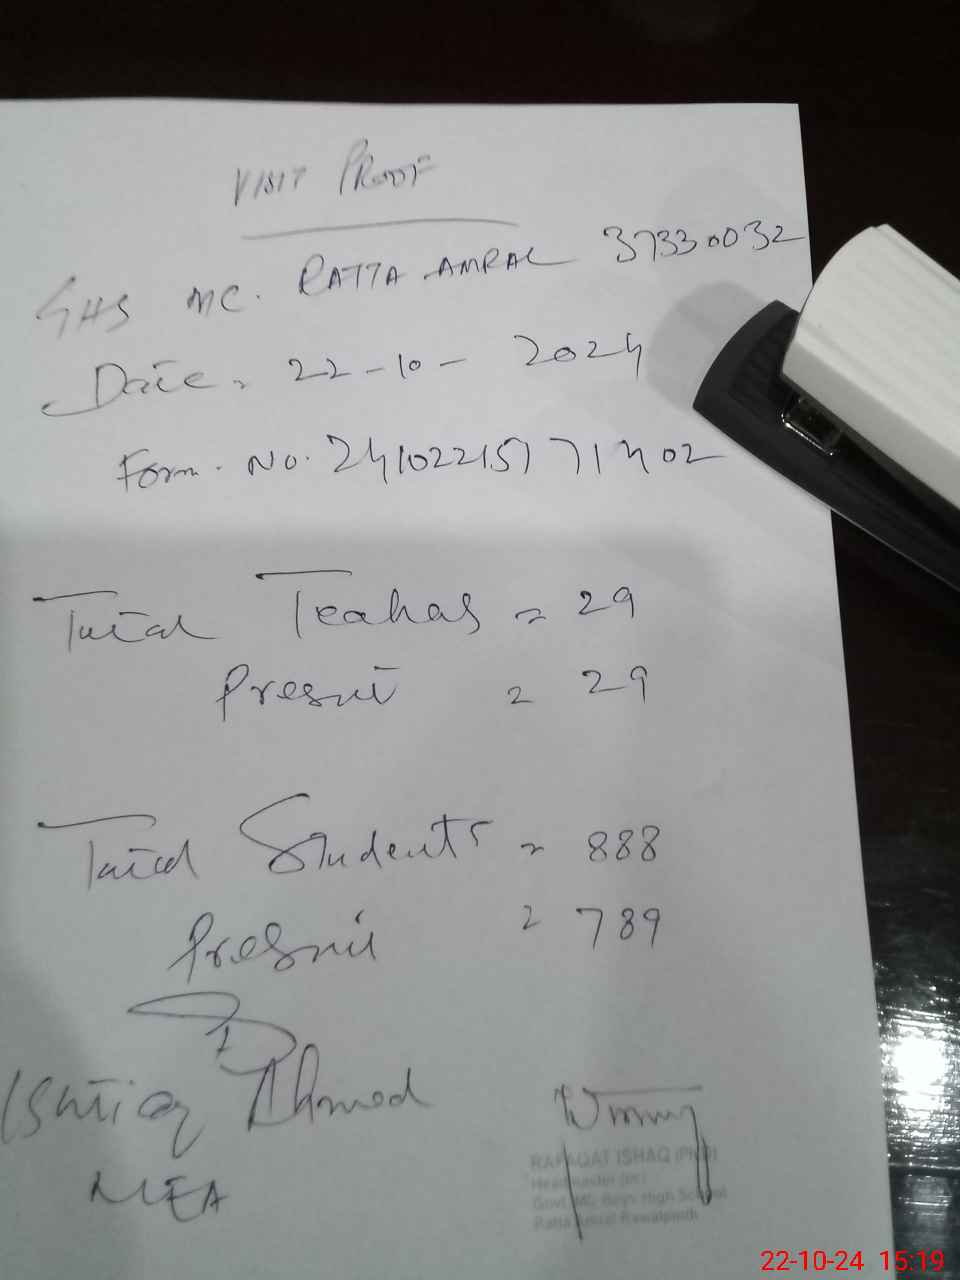 VISIT PROOF
GHS MC. RATTA AMRAL 37330032
Date = 22-10-2024
Form. No. 24102215171402
Total Teachers = 29
Present = 29
Total Students = 888
Present = 789
Ishtiaq Ahmed
MEA
RAFAQAT ISHAQ (PhD)
Headmaster
Govt. MC Boys High School
Ratta Amral Rawalpindi
22-10-24 15:19